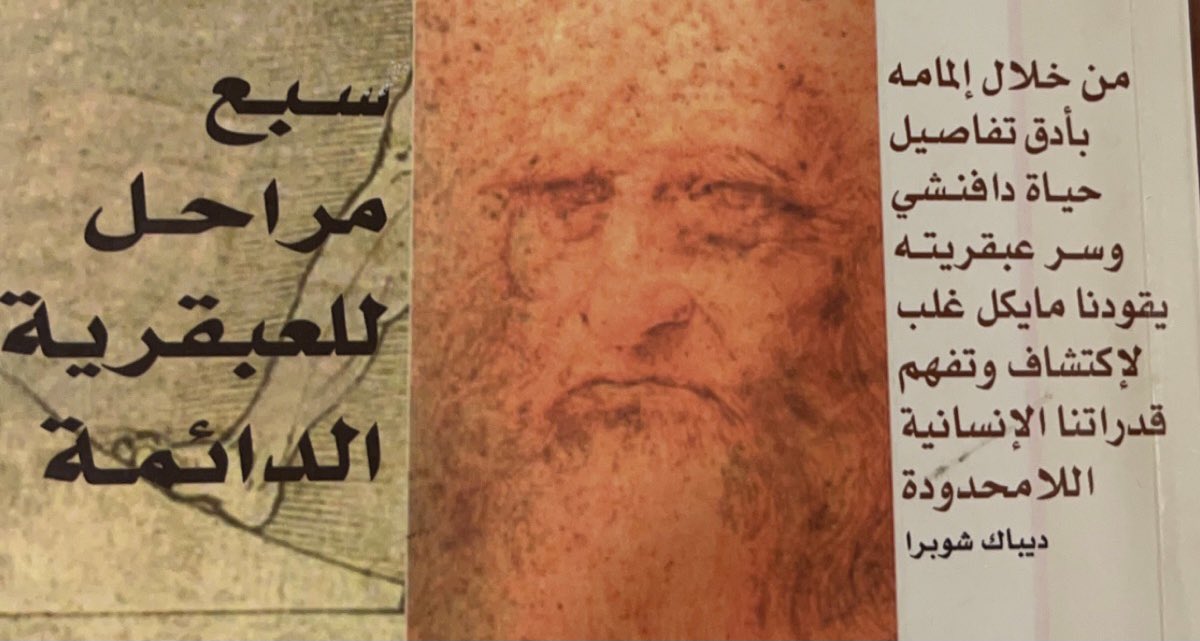 من خلال إلمامه
بأدق تفاصيل
حياة دافنشي
وسر عبقريته
يقودنا مايكل غلب
لإكتشاف وتفهم
قدراتنا الإنسانية
اللامحدودة
ديباك شوبرا
سبع
مراحل
للعبقرية
الدائمة